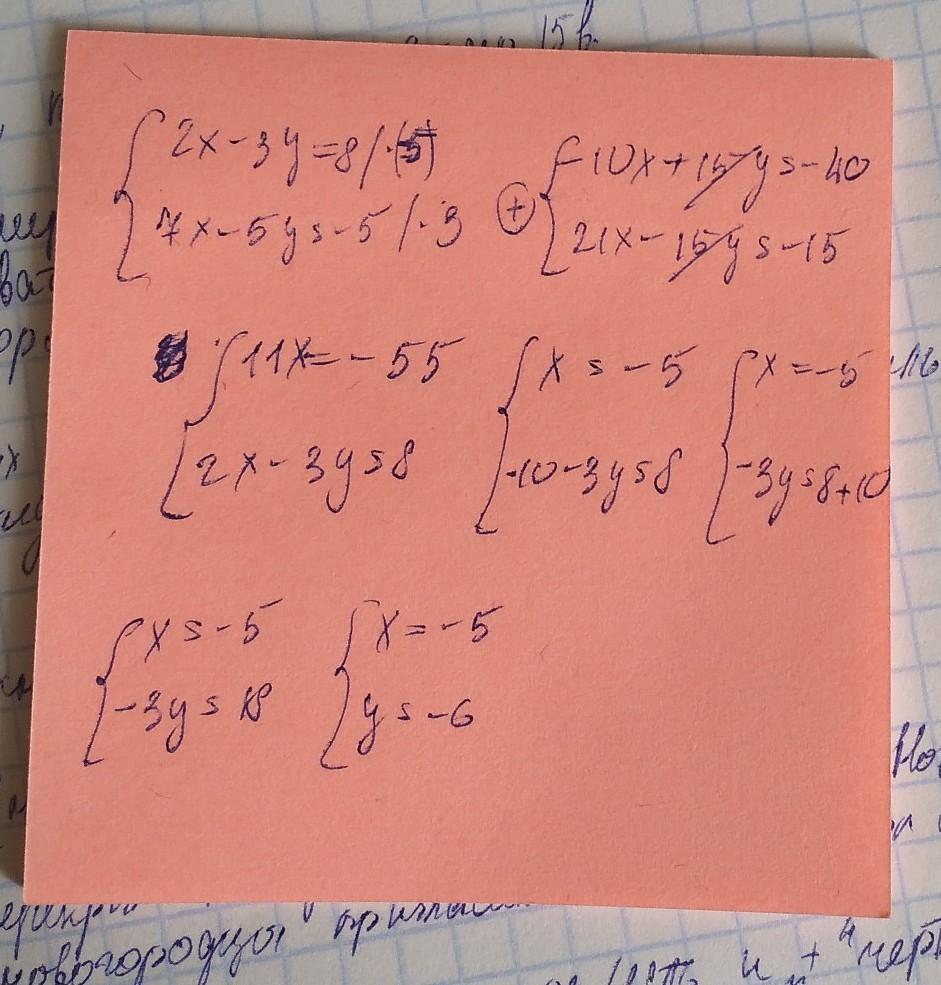 15 в.
2x-3y=8/·(-5)
7x-5y=-5/·3
-10x+15y=-40
+
21x-15y=-15
11x=-55
2x-3y=8
x=-5
-10-3y=8
x=-5
-3y=8+10
x=-5
-3y=18
x=-5
y=-6
ват
Но
новгородцы
и + "черн